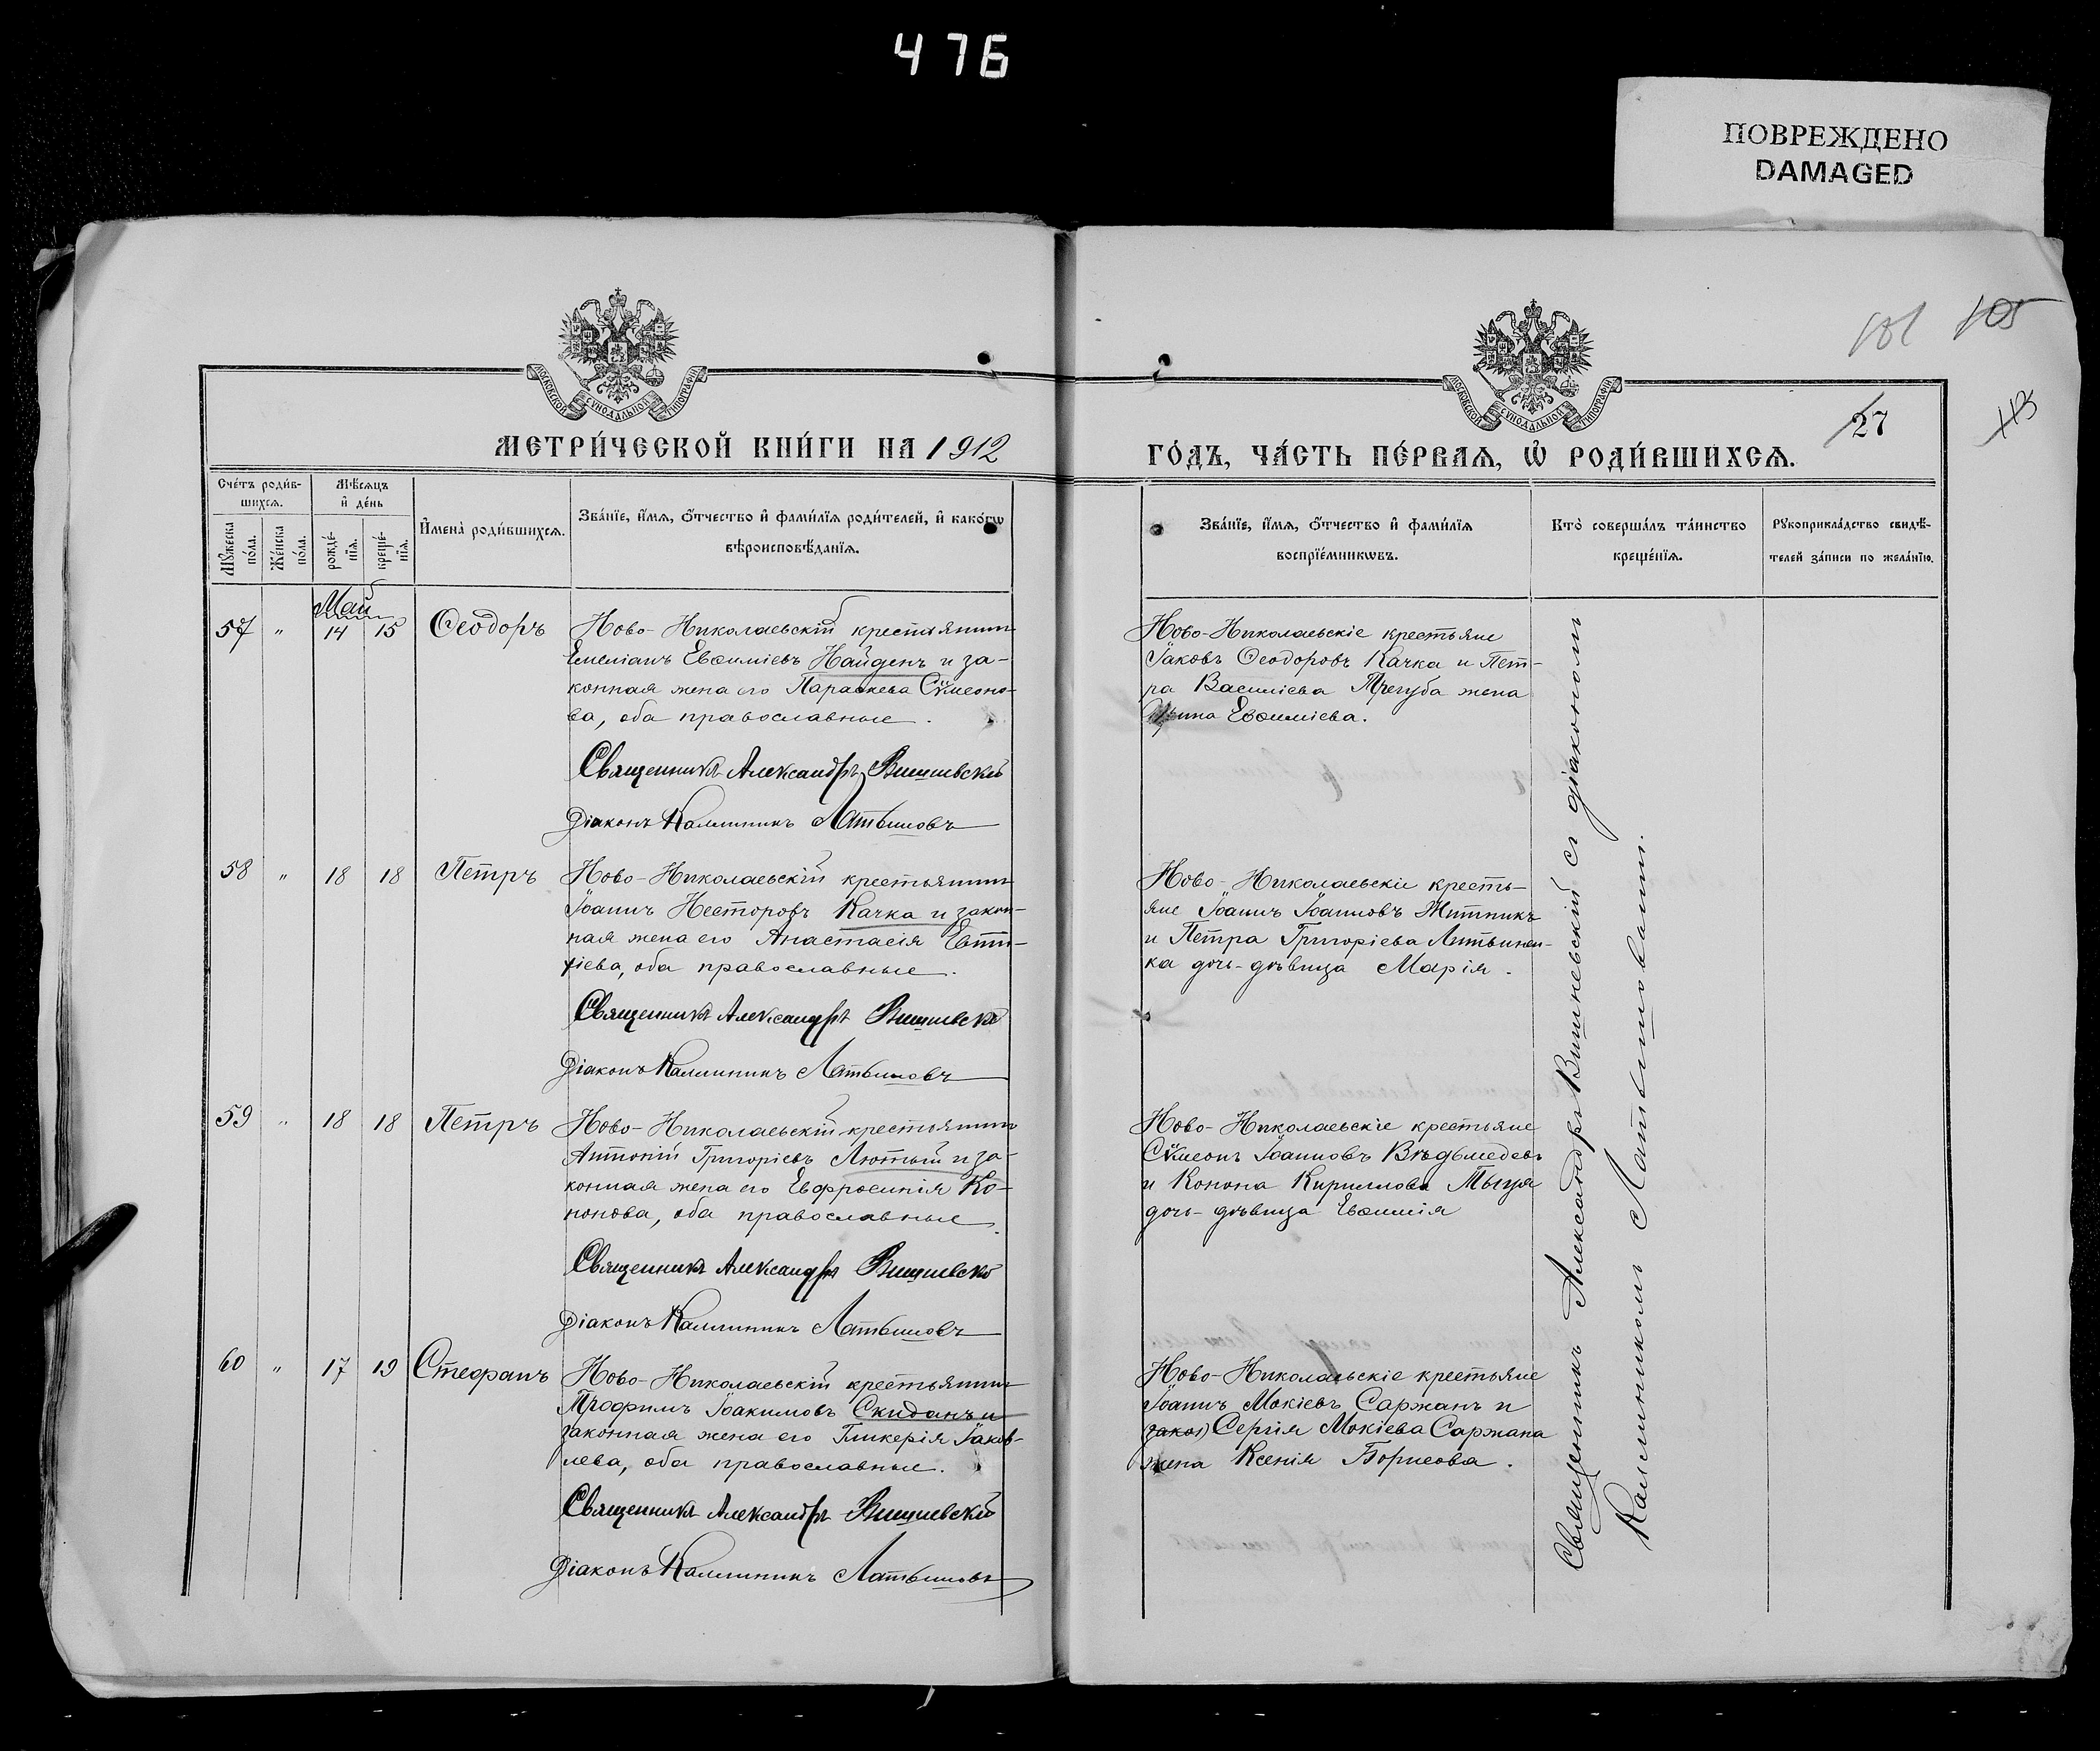 476
ПОВРЕЖДЕНО
DAMAGED
101 105
113
27
МОСКОВСКОЙ СУНОДАЛЬНОЙ ТИПОГРАФІИ
МОСКОВСКОЙ СУНОДАЛЬНОЙ ТИПОГРАФІИ
МЕТРИ́ЧЕСКОЙ КНИ́ГИ НА 1912
ГО́ДЪ, ЧА́СТЬ ПЕ́РВАѦ, Ѡ҆ РОДИ́ВШИХСѦ.
Сче́тъ роди́в-
шихсѧ.
Мѣ́сѧцъ
и҆ де́нь
Мꙋ́жеска
по́ла.
Же́нска
по́ла.
рожде́-
нїѧ.
креще́-
нїѧ.
И҆мена̀ роди́вшихсѧ.
Зва́нїе, и҆́мѧ, ѻ҆́тчество и҆ фами́лїѧ роди́телей, и҆ како́гѡ
вѣроисповѣ́данїѧ.
Зва́нїе, и҆́мѧ, ѻ҆́тчество и҆ фами́лїѧ
воспрїе́мникѡвъ.
Кто̀ соверша́лъ та́инство
креще́нїѧ.
Рꙋкоприкла́дство свидѣ́-
телей за́писи по жела́нїю.
Май
57 " 14 15 Ѳеодоръ
Ново-Николаевскій крестьянинъ
Емеліанъ Евѳиміевъ Найденъ и за-
конная жена его Параскева Сѷмеоно-
ва, оба православные.
Священникъ Александръ Вишневскій
Діаконъ Каллиникъ Латвиновъ
Ново-Николаевскіе крестьяне
Іаковъ Ѳеодоровъ Качка и Пет-
ра Василіева Трегуба жена
Ирина Евѳиміева.
58 " 18 18 Петръ
Ново-Николаевскій крестьянинъ
Іоаннъ Несторовъ Качка и закон-
ная жена его Анастасія Евти-
хіева, оба православные.
Священникъ Александръ Вишневскій
Діаконъ Каллиникъ Латвиновъ
Ново-Николаевскіе кресть-
яне Іоаннъ Іоанновъ Житникъ
и Петра Григоріева Литвинен-
ка дочь-дѣвица Марія.
59 " 18 18 Петръ
Ново-Николаевскій крестьянинъ
Антоній Григоріевъ Лютый и за-
конная жена его Евфросинія Ко-
нонова, оба православные.
Священникъ Александръ Вишневскій
Діаконъ Каллиникъ Латвиновъ
Ново-Николаевскіе крестьяне
Сѷмеонъ Іоанновъ Вѣдьмедевъ
и Конона Кириллова
дочь-дѣвица Евѳимія
60 " 17 19 Стефанъ
Ново-Николаевскій крестьянинъ
Трофимъ Іоакимовъ Скиданъ и
законная жена его Гликерія Іаков-
лева, оба православные.
Священникъ Александръ Вишневскій
Діаконъ Каллиникъ Латвиновъ
Ново-Николаевскіе крестьяне
Іоаннъ Мокіевъ Саржанъ и
(закон) Сергія Мокіева Саржана
жена Ксенія Борисова.
Священникъ Александръ Вишневскій съ діакономъ
Каллиникомъ Латвиновымъ.